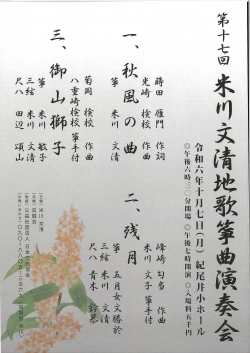 第十七回 米川文清地歌箏曲演奏会
令和六年十月七日(月) 紀尾井小ホール
◎午後六時三〇分開場 ◎午後七時開演 ◎入場料五千円
一、秋風の曲
蒔田 雁門 作詞
光崎 検校 作曲
箏 米川 文清
二、残月
峰崎 勾当 作曲
米川 文子 箏手付
箏 五月女文勝於
三絃 米川 文清
尺八 青木 鈴慕
三、御山獅子
菊岡 検校 作曲
八重崎検校 箏手付
箏 米川 敏子
三絃 米川 文清
尺八 田辺 頌山